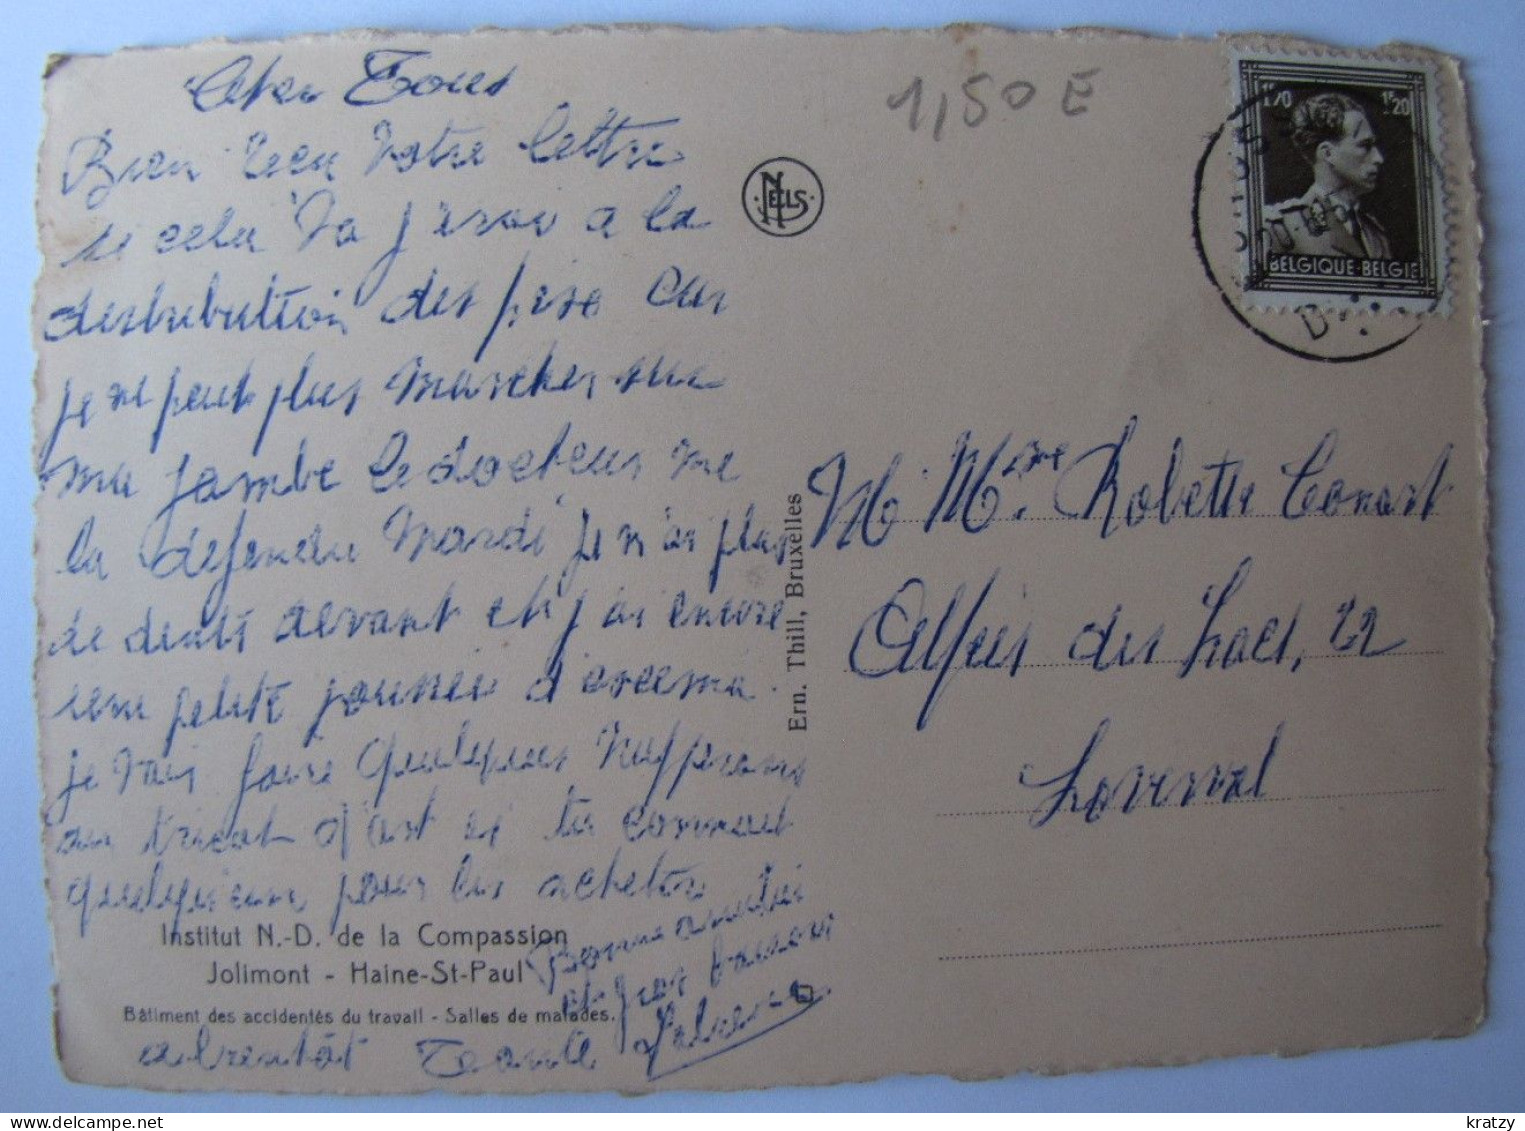 Cher Tous
Bien recu Votre lettre
si cela Va j'irai a la
distribution des prix Car
je ne peut plus marcher sur
ma jambe le docteur me
la defendu Mardi je n'ai plus
de dents devant et j'ai encore
une petite d'
je Vais faire quelques Napperons
au tricot si tu connait
quelqu'un pour les acheter
Bonne amitié
et gros baisers
a bientôt Tante
1,50 E
NELS
1F20 1F20
BELGIQUE-BELGIE
M Mme Robette Conart
Allée des Lacs, 22
Loverval
Ern. Thill, Bruxelles
Institut N.-D. de la Compassion
Jolimont - Haine-St-Paul
Bâtiment des accidentés du travail - Salles de malades.
kratzy